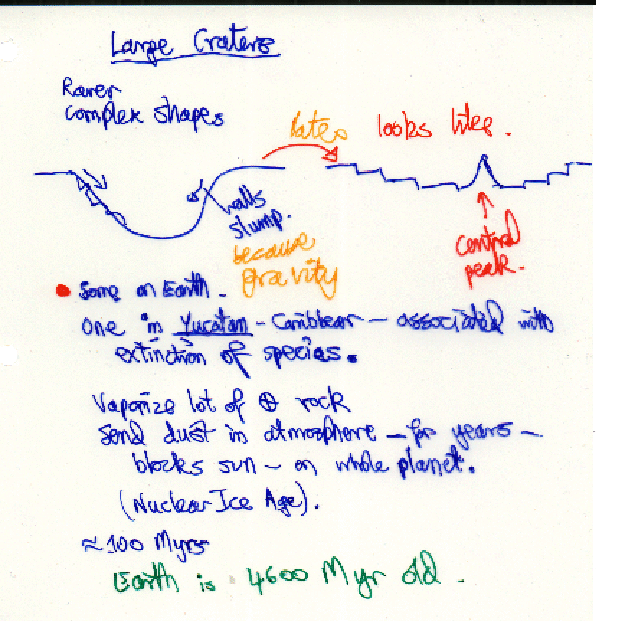 Large Craters
Rarer
complex shapes
later looks like.
walls
slump.
because
gravity
central
peak.
• Some on Earth.
One in Yucatan - Caribbean - associated with
extinction of species.
Vaporize lot of ⊕ rock
Send dust in atmosphere - for years -
blocks sun - on whole planet.
(Nuclear Ice Age).
≈ 100 Myrs
Earth is 4600 Myr old.